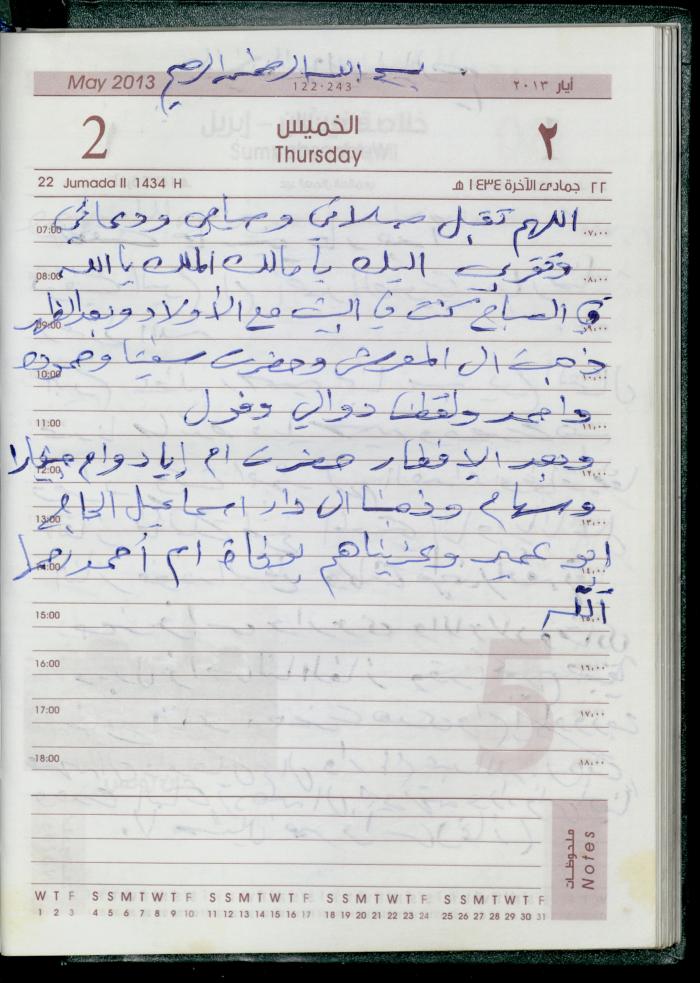 بسم الله الرحمن الرحيم
May 2013 122-243 أيار ٢٠١٣
2 الخميس ٢
Thursday
22 Jumada II 1434 H ٢٢ جمادى الآخرة ١٤٣٤ هـ
اللهم تقبل صلاتي وصيامي ودعائي
07:00 ٠٧,٠٠
وتقربي اليك يا مالك الملك يا الله
08:00 ٠٨,٠٠
في الصباح كنت في البيت مع الأولاد وبعد الظهر
09:00 ٠٩,٠٠
ذهبت ال المعرش وحضرت سفيتا وحموده
10:00 ١٠,٠٠
واحمد ولقطنا دوالي وفول
11:00 ١١,٠٠
وبعد الافطار حضرت ام إياد وام
12:00 ١٢,٠٠
وسهام وذهبنا ال دار اسماعيل الحاج
13:00 ١٣,٠٠
ابو عمير وعزيناهم بوفاة ام أحمد رحمها
14:00 ١٤,٠٠
الله
15:00 ١٥,٠٠
16:00 ١٦,٠٠
17:00 ١٧,٠٠
18:00 ١٨,٠٠
ملحوظات Notes
W T F S S M T W T F S S M T W T F S S M T W T F S S M T W T F
1 2 3 4 5 6 7 8 9 10 11 12 13 14 15 16 17 18 19 20 21 22 23 24 25 26 27 28 29 30 31